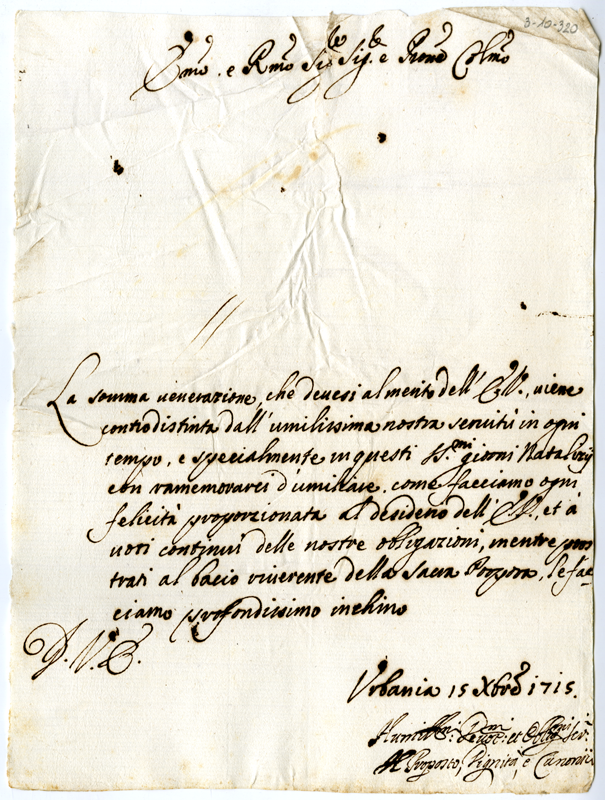 3-10-320
Emo. e Rmo Sigre Sigr. e Prone Colmo
La somma venerazione, che devesi al merito dell' E.V., viene
contradistinta dall' umilissima nostra servitù in ogni
tempo, e specialmente in questi SS.mi giorni Natalizij
con ramemorarci d'umiliare, come facciamo ogni
felicità proporzionata al desiderio dell' E.V., et à
voti continui delle nostre obligazioni, mentre pros
trati al bacio riverente della Sacra Porpora, le fac=
ciamo profondissimo inchino
D. V. E.
Urbania 15 Xbre 1715.
Humill.mi Devot.mi et Obbl.mi Ser.
Il Proposto, Dignità, e Canonici